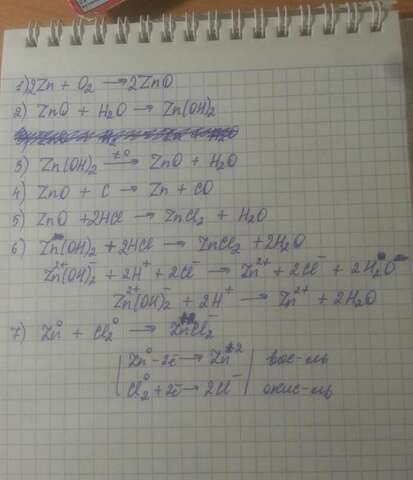 1) 2Zn + O₂ → 2ZnO
2) ZnO + H₂O → Zn(OH)₂
3) Zn(OH)₂ —t°→ ZnO + H₂O
4) ZnO + C → Zn + CO
5) ZnO + 2HCl → ZnCl₂ + H₂O
6) Zn(OH)₂ + 2HCl → ZnCl₂ + 2H₂O
Zn²⁺(OH)₂⁻ + 2H⁺ + 2Cl⁻ → Zn²⁺ + 2Cl⁻ + 2H₂O
Zn²⁺(OH)₂⁻ + 2H⁺ → Zn²⁺ + 2H₂O
7) Zn⁰ + Cl₂⁰ → Zn⁺²Cl₂⁻
Zn⁰ - 2ē → Zn⁺² | вос-ль
Cl₂⁰ + 2ē → 2Cl⁻ | окис-ль